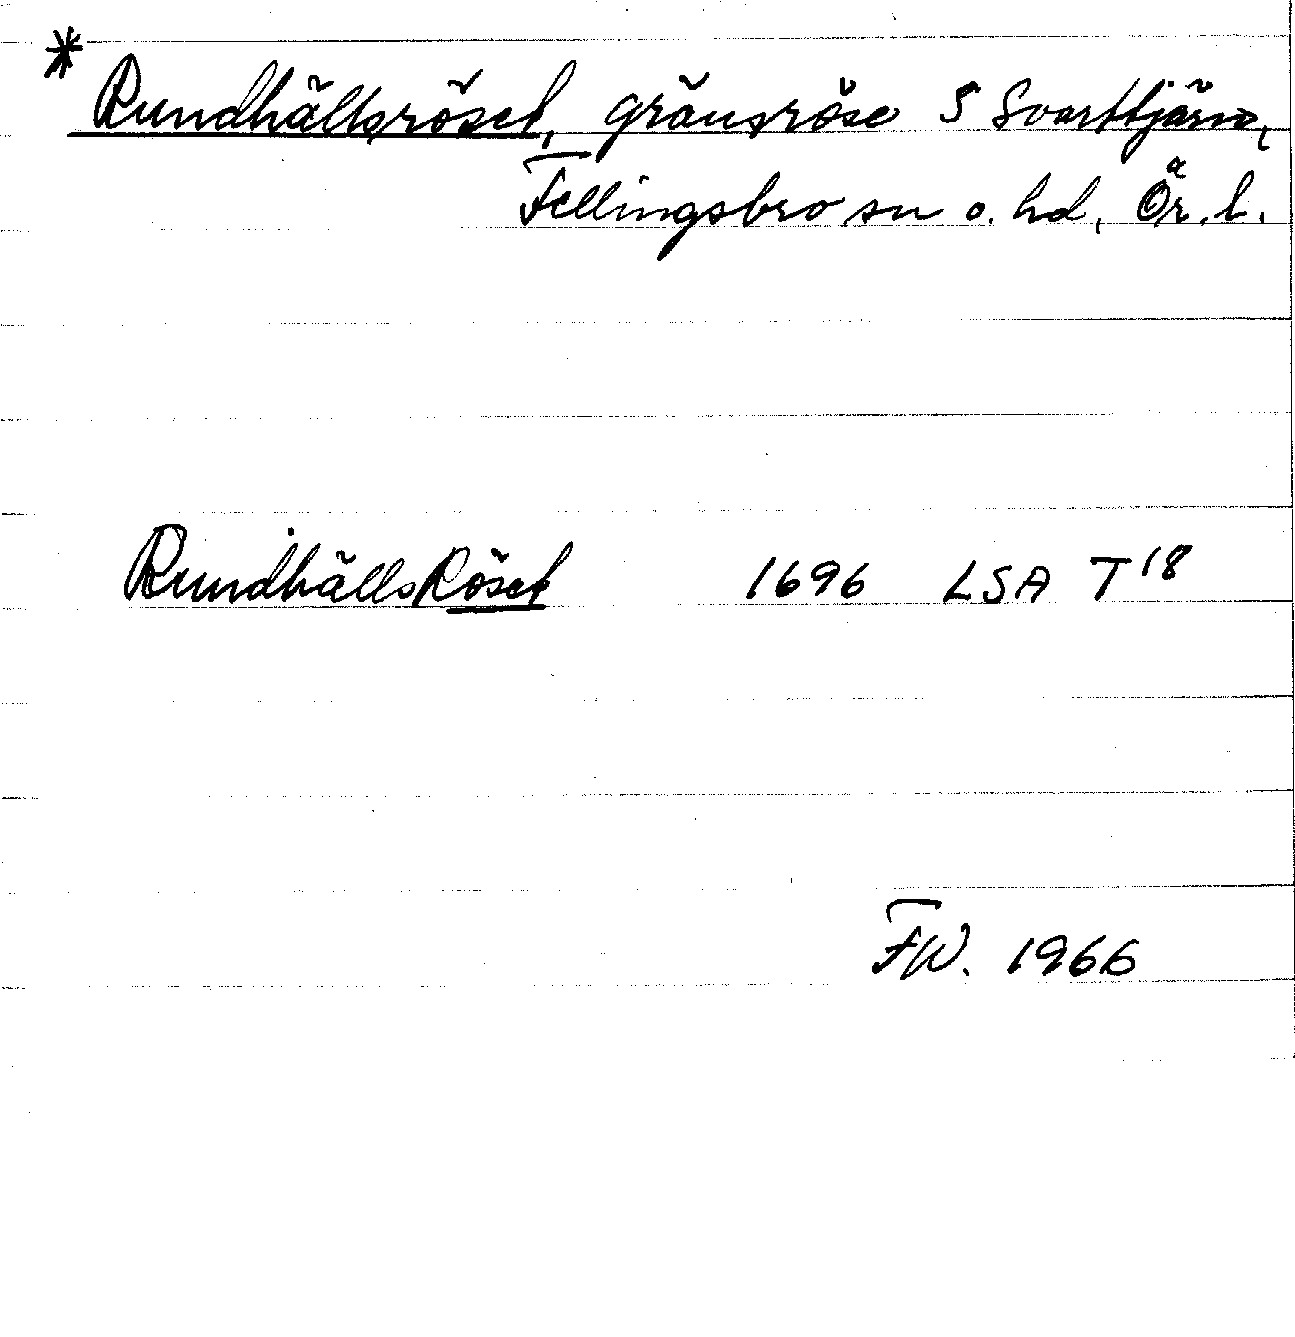 * Rundhällsröset, gränsröse S Svarttjärn,
Fellingsbro sn o. hd, Ör. l.
RundhällsRöset 1696 LSA T18
FW. 1966